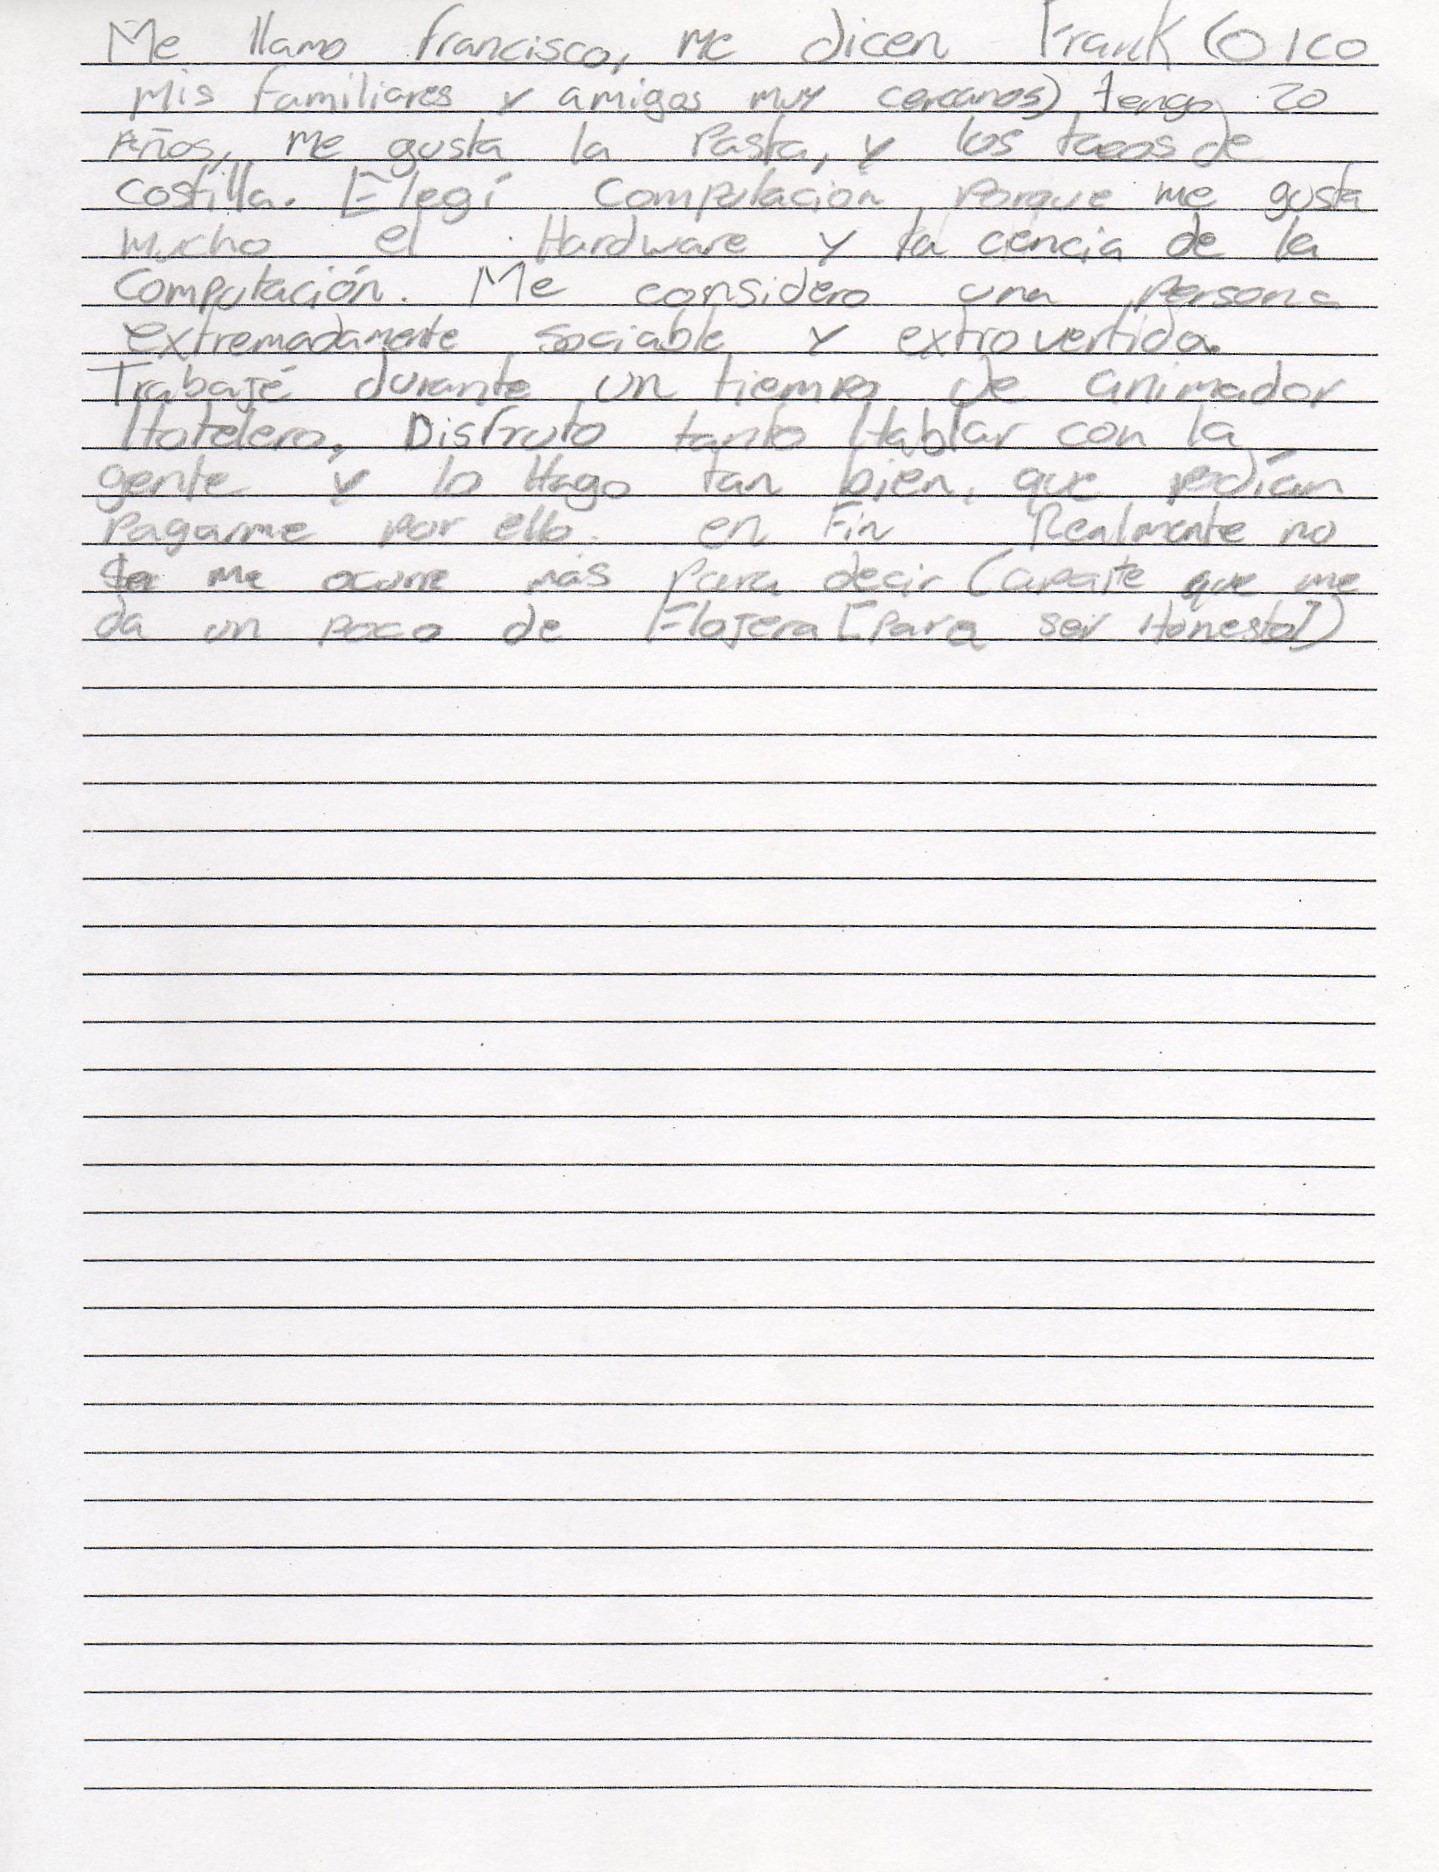 Me llamo francisco, me dicen Frank (O Ico
Mis familiares y amigos muy cercanos) tengo 20
Años, me gusta la Pasta, y los tacos de
costilla. Elegí Computación Porque me gusta
mucho el Hardware y la cencia de la
Computación. Me considero una Persona
extremadamente sociable y extrovertida.
Trabajé durante un tiempo de animador
Hotelero, Disfruto tanto Hablar con la
gente y lo Hago tan bien, que podían
Pagarme por ello. en Fin Realmente no
se me ocurre más para decir (aparte que me
da un poco de Flojera [para ser Honesto])